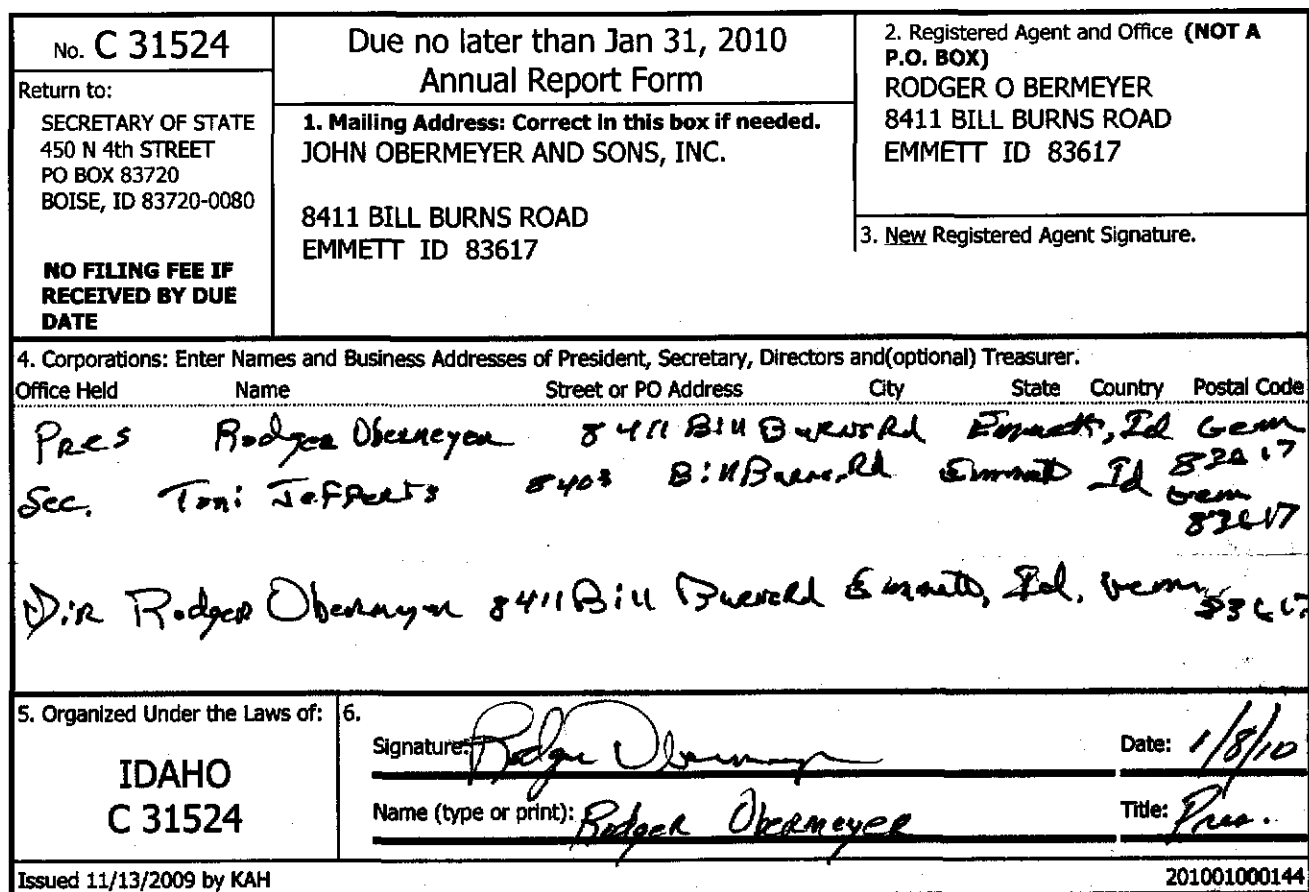 No. C 31524
Return to:
SECRETARY OF STATE
450 N 4th STREET
PO BOX 83720
BOISE, ID 83720-0080
NO FILING FEE IF
RECEIVED BY DUE
DATE
Due no later than Jan 31, 2010
Annual Report Form
1. Mailing Address: Correct in this box if needed.
JOHN OBERMEYER AND SONS, INC.
8411 BILL BURNS ROAD
EMMETT ID 83617
2. Registered Agent and Office (NOT A
P.O. BOX)
RODGER O BERMEYER
8411 BILL BURNS ROAD
EMMETT ID 83617
3. New Registered Agent Signature.
4. Corporations: Enter Names and Business Addresses of President, Secretary, Directors and(optional) Treasurer.
Office Held Name Street or PO Address City State Country Postal Code
Pres Rodger Obermeyer 8411 Bill Burns Rd Emmett, Id Gem
Sec. Toni Jefferts 8408 Bill Burns Rd Emmett Id Gem
83617
Dir Rodger Obermeyer 8411 Bill Burns Rd Emmett, Id. Gem
83617
5. Organized Under the Laws of:
IDAHO
C 31524
6.
Signature: Rodger Obermeyer Date: 1/8/10
Name (type or print): Rodger Obermeyer Title: Pres.
Issued 11/13/2009 by KAH 201001000144